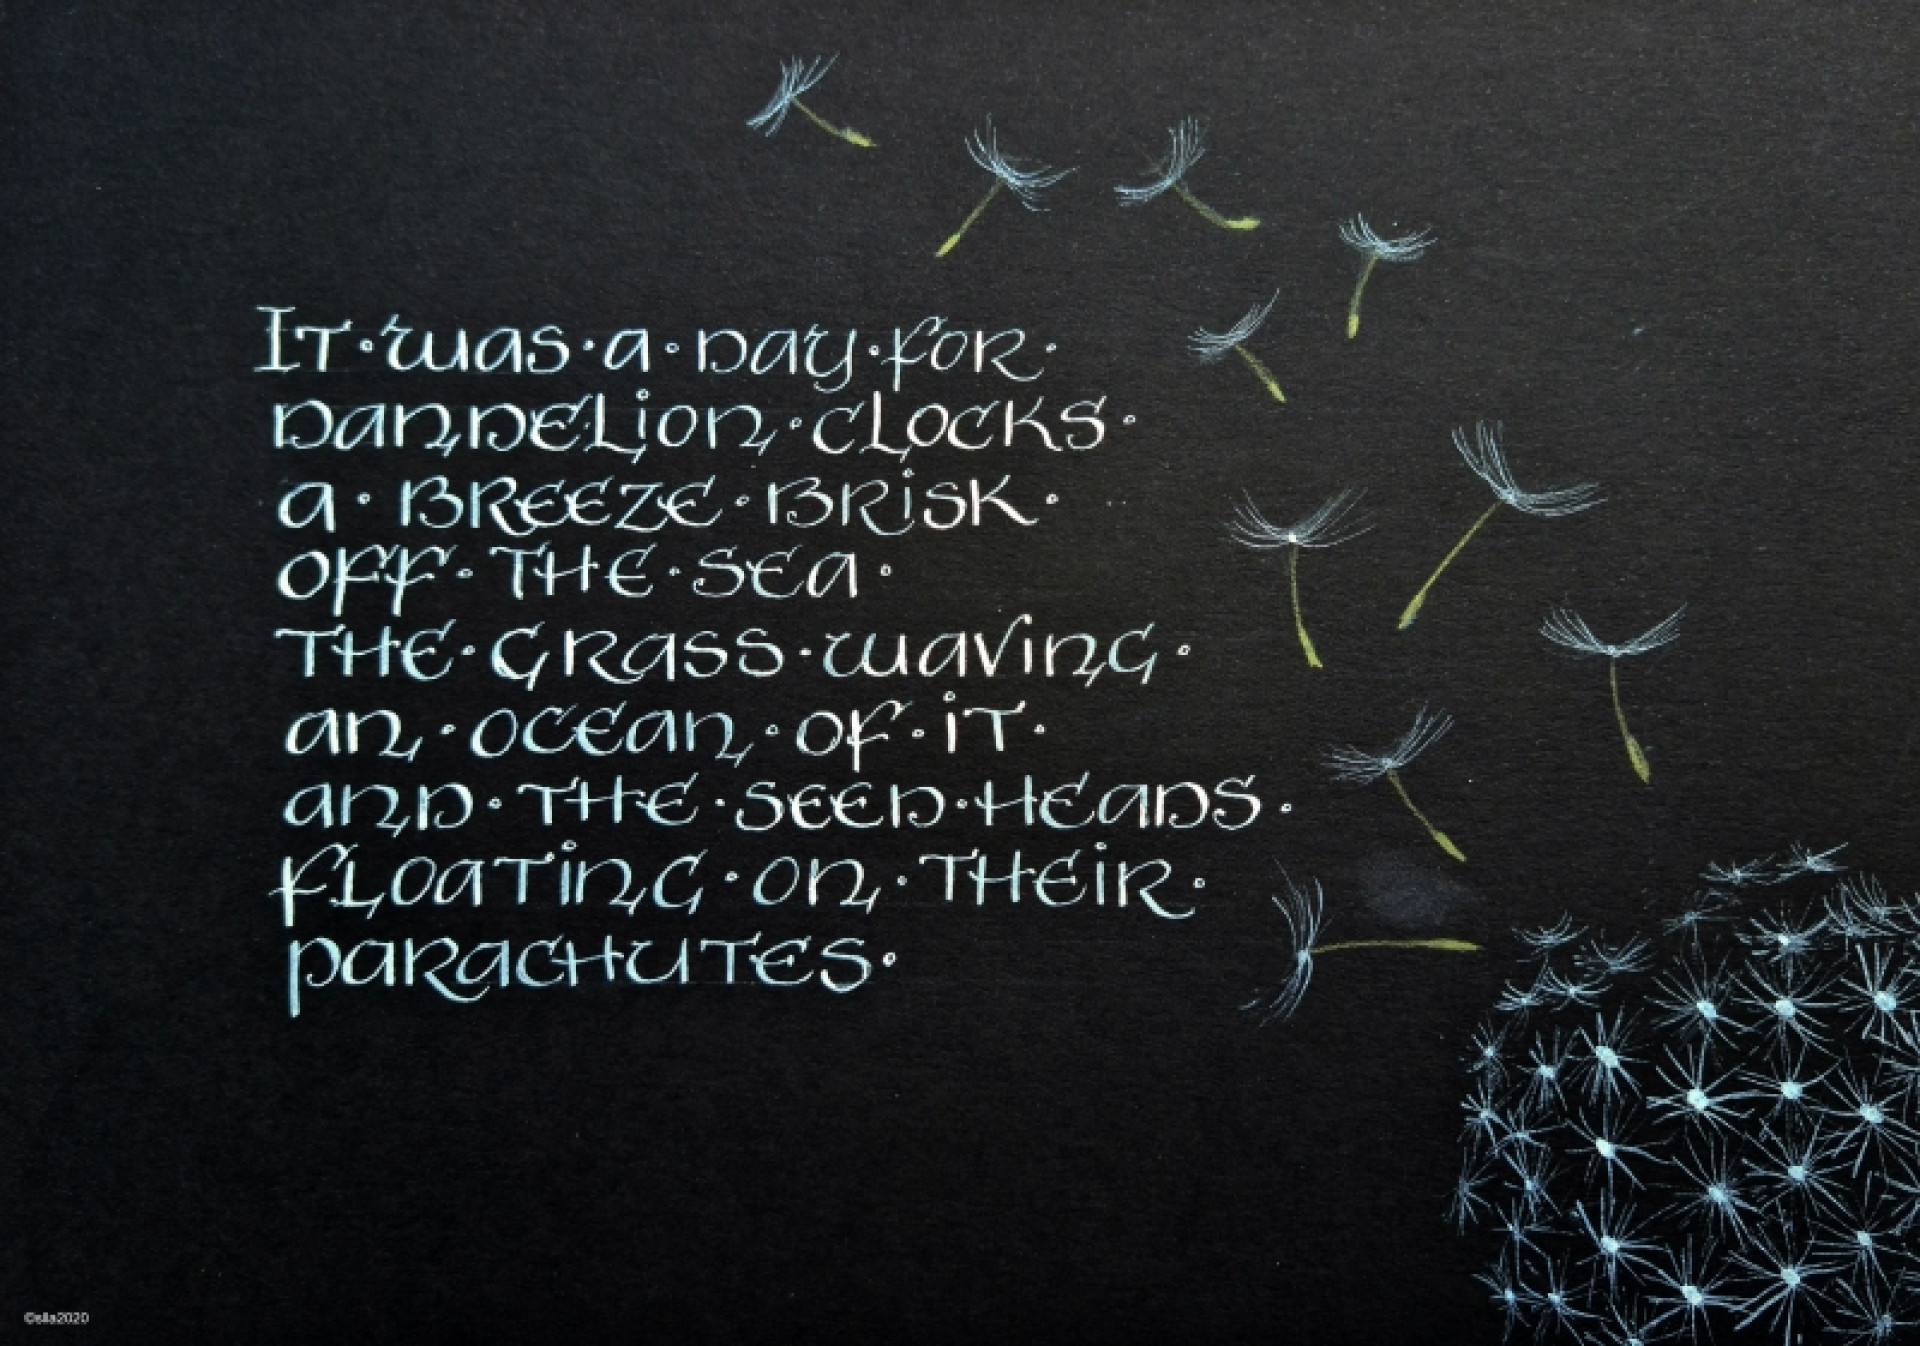 It·was·a·day·for·
dandelion·clocks·
a·breeze·brisk·
off·the·sea·
the·grass·waving·
an·ocean·of·it·
and·the·seed·heads·
floating·on·their·
parachutes·
©slla2020